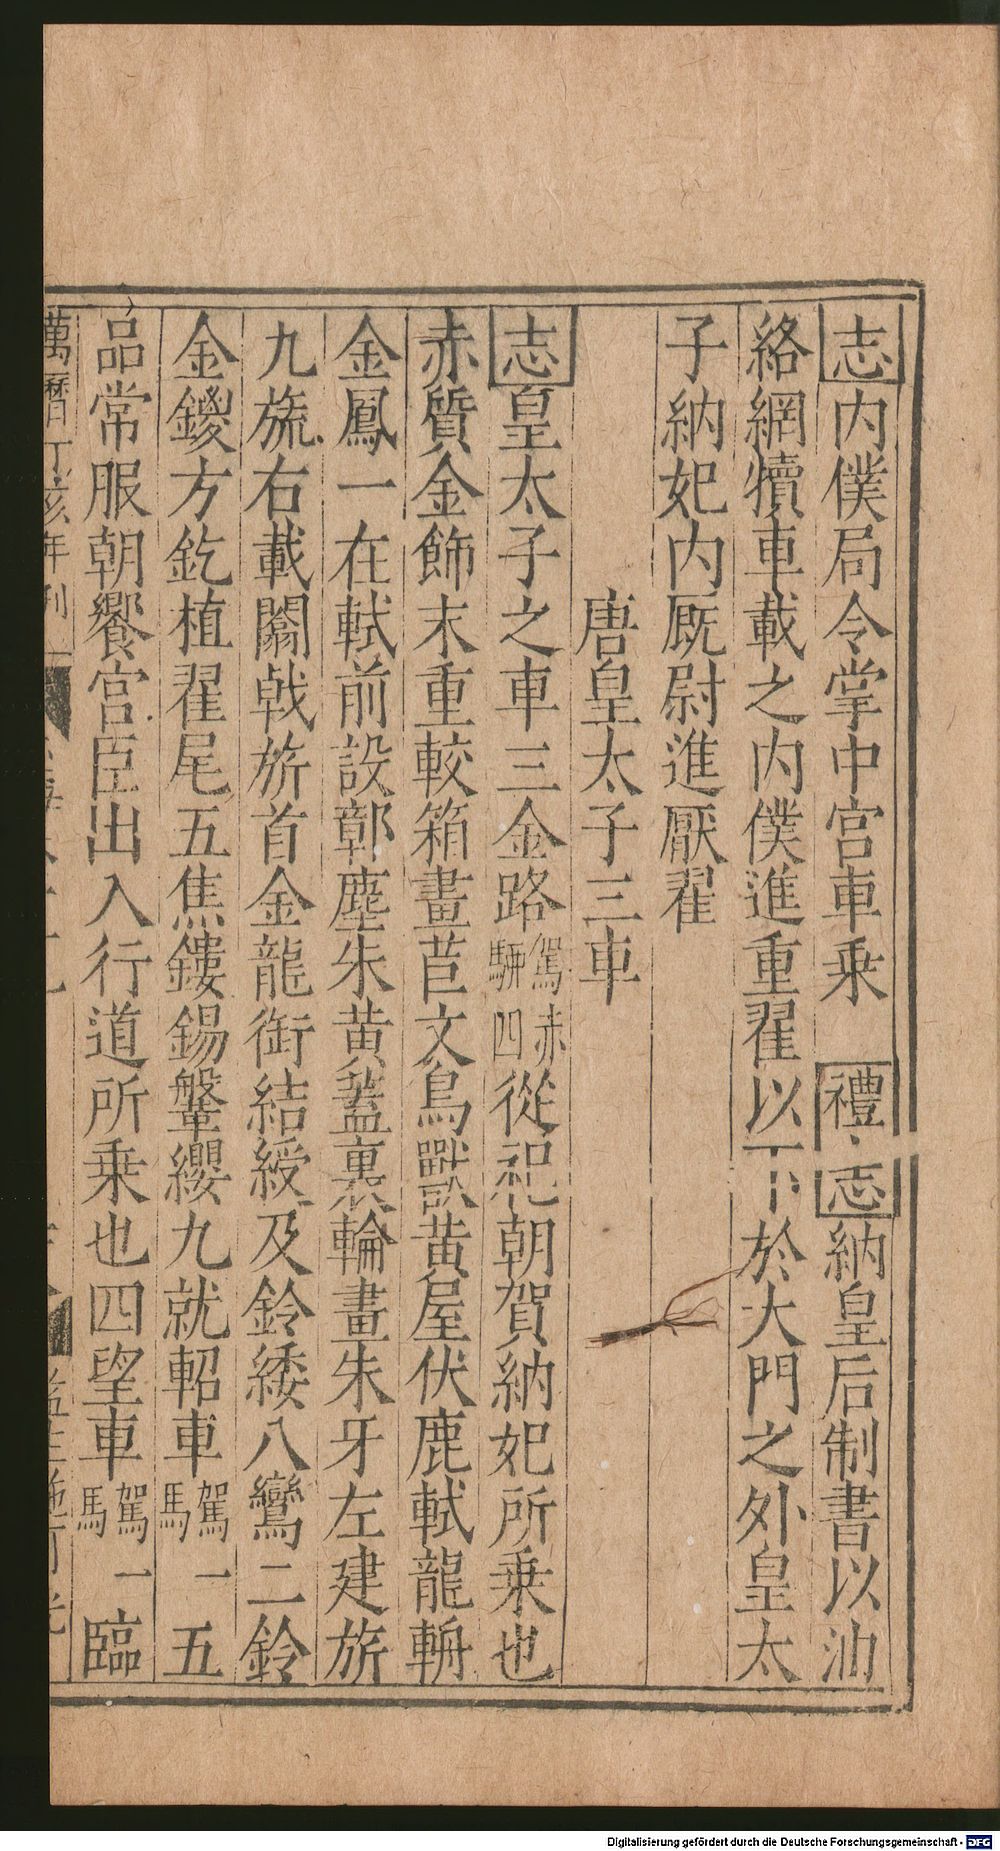 志内僕局令掌中宫車乗　禮志納皇后制書以油
絡網犢車載之内僕進重翟以下於大門之外皇太
子納妃内厩尉進厭翟
唐皇太子三車
志皇太子之車三金路駕赤駵四從祀朝賀納妃所乗也
赤質金飾末重較箱畫苣文鳥獸黄屋伏鹿軾龍輈
金鳳一在軾前設鄣塵朱黄蓋裏輪畫朱牙左建旂
九旒右載闟戟旂首金龍銜結綬及鈴緌八鸞二鈴
金鍐方釳植翟尾五焦鏤鍚鞶纓九就軺車駕一馬五
品常服朝饗宫臣出入行道所乗也四望車駕一馬臨
萬曆丁亥年刋
Digitalisierung gefördert durch die Deutsche Forschungsgemeinschaft - DFG